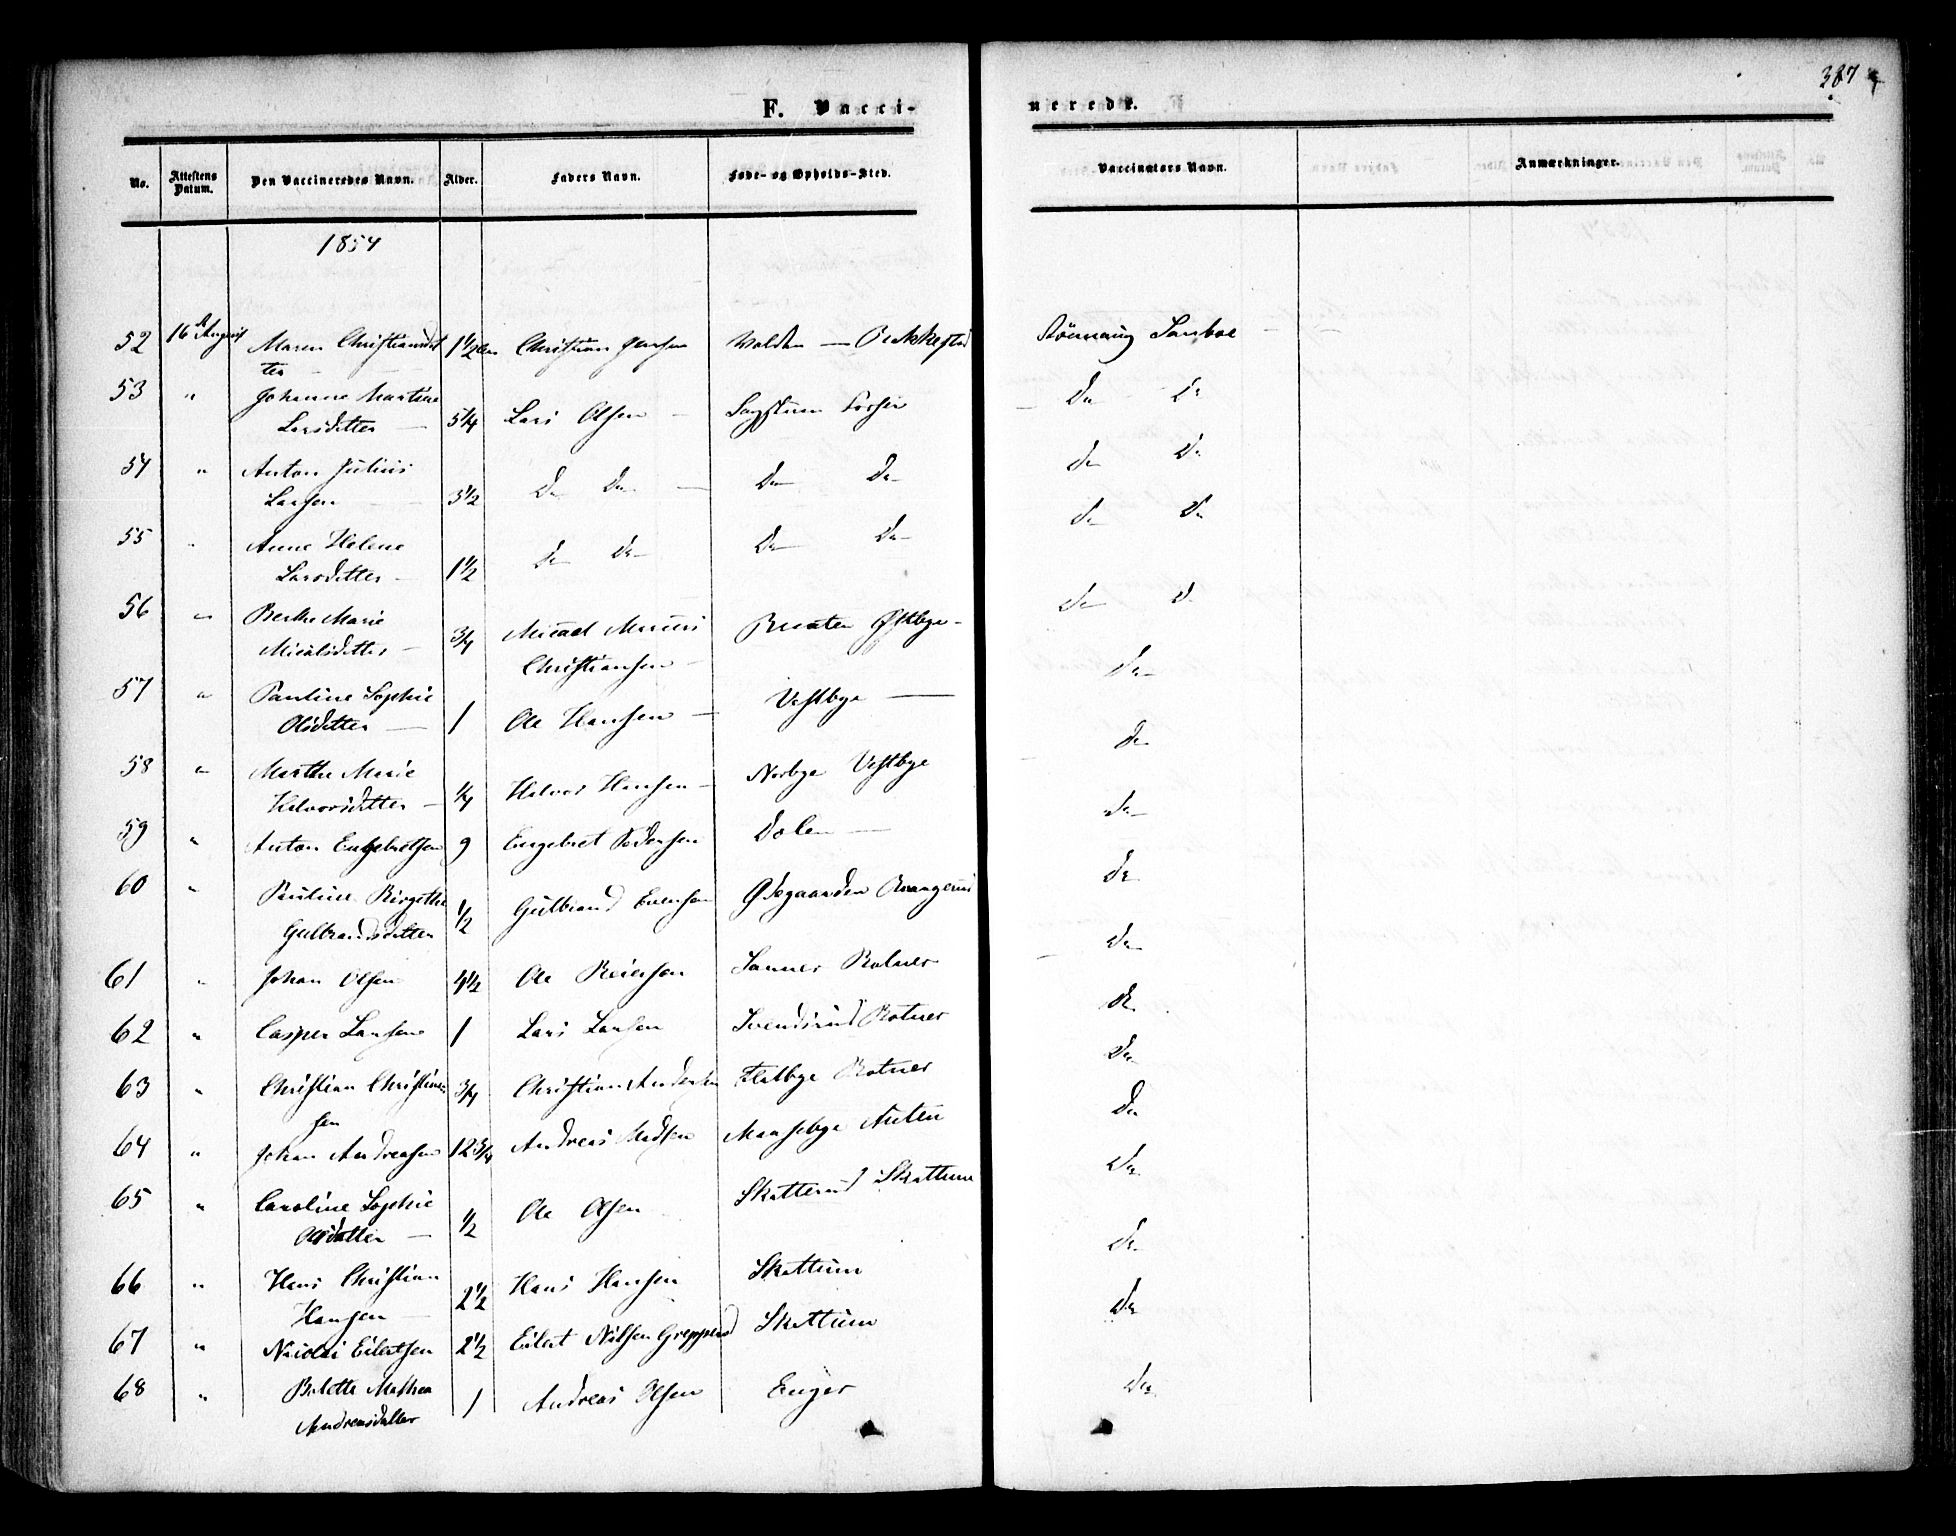 387
F. Vacci-
neredt.
No.
Attestens Datum.
Den Vaccineredes Navn.
Alder.
Faders Navn.
Føde- og Opholds-Sted.
Vaccinators Navn.
Anmærkninger.
1854
52 16 August Maren Christiansdat 1 1/2 Christian Jensen Wolden — Bekkestad Sanboe
ter
53 " Johanne Martine
Larsdatter — 5 1/4 Lars Olsen — Do Do
54 " Anton Julius
Larsen 3 1/2 Do Do — Do Do Do Do
55 " Anne Helene
Larsdatter — 1 1/2 Do Do Do Do Do Do
56 " Berthe Marie
Micalsdatter — 3/4 Micael Do Do
Christiansen —
57 " Pauline Sophie
Olsdatter — 1 Ole Hansen — Vestbye — Do
58 " Marthe Marie
Halvorsdatter — 1/4 Halvor Hansen — Norbye Vestbye Do
59 " Anton Engebretsen 9 Engebret Pedersen Dolen — Do
60 " Pauline Birgethe
Gulbrandsdatter 1/2 Gulbrand Evensen Ødegaarden Do
61 " Johan Olsen 4 1/2 Ole Reiersen Sanner Rotner Do
62 " Casper Larsen 1 Lars Larsen Svendsrud Rotner Do
63 " Christian Christian 3/4 Christian Andersen Flatbye Rotner Do
sen
64 " Johan Andreasen 12 3/4 Andreas Madsen Do
65 " Caroline Sophie
Olsdatter — 1/2 Ole Olsen Skatterud Skattum Do
66 " Hans Christian
Hansen — 2 1/2 Hans Hansen Skattum Do
67 " Nicolai Eilertsen 2 1/2 Eilert Nilsen Skattum Do
68 " Mathea
Andreasdatter 1 Andreas Olsen Enger Do